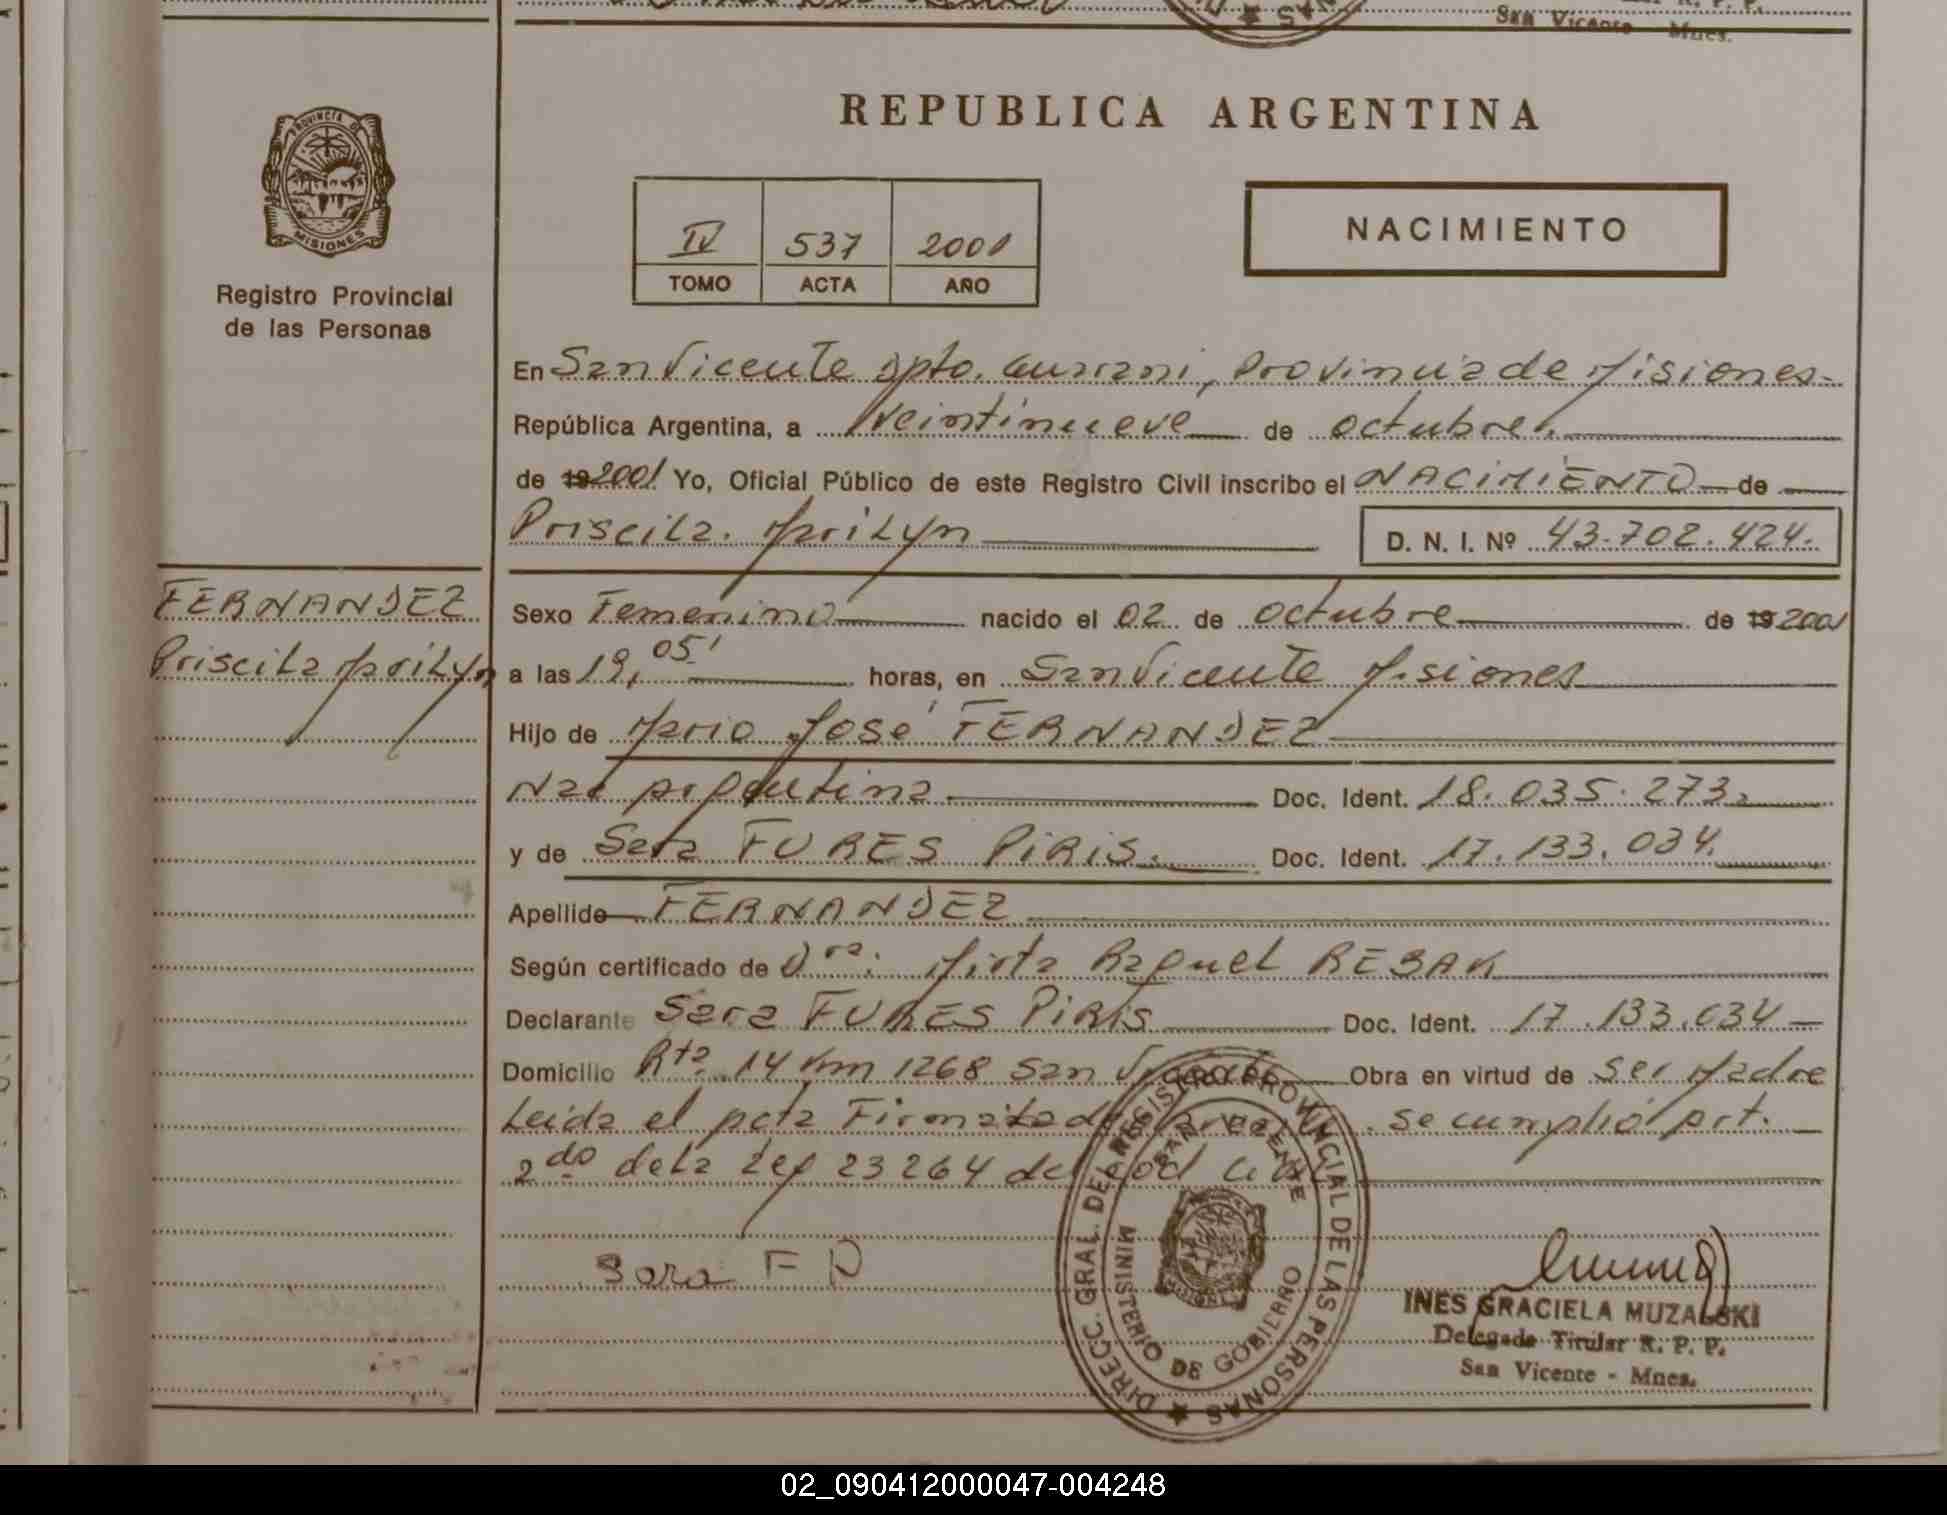 San Vicente Mnes.
PROVINCIA DE
MISIONES
Registro Provincial
de las Personas
REPUBLICA ARGENTINA
IV 537 2001
TOMO ACTA AÑO
NACIMIENTO
En San Vicente Dpto. Guarani, Provincia de Misiones
República Argentina, a Veintinueve de octubre
de 19 2001 Yo, Oficial Público de este Registro Civil inscribo el NACIMIENTO de
Priscila Marilyn D. N. I. Nº 43.702.424.
FERNANDEZ
Priscila Marilyn
Sexo Femenino nacido el 02 de octubre de 19 2001
a las 19,05' horas, en San Vicente Misiones
Hijo de Mario José FERNANDEZ
Nac Argentina Doc. Ident. 18.035.273.
y de Sara FURES PIRIS. Doc. Ident. 17.133.034.
Apellido FERNANDEZ
Según certificado de Dra. Mirta Raquel REBAK
Declarante Sara FURES PIRIS Doc. Ident. 17.133.034
Domicilio Rta. 14 Km 1268 San Vicente Obra en virtud de ser Madre
Leida el Acta Firma. Se cumplió Art.
2do de la Ley 23264 del Cod Civil
Sara F P
DIRECC. GRAL. DEL REGISTRO PROVINCIAL DE LAS PERSONAS
SAN VICENTE
MINISTERIO DE GOBIERNO
INES GRACIELA MUZALSKI
Delegada Titular R. P. P.
San Vicente - Mnes.
02_090412000047-004248